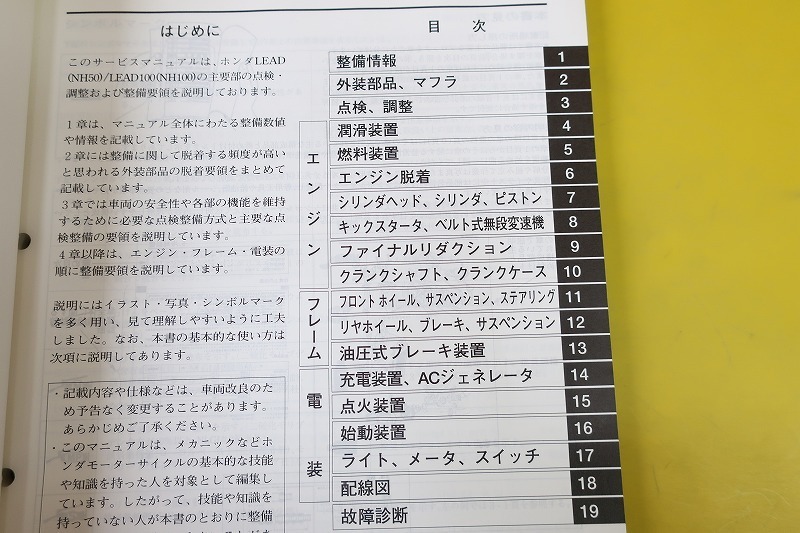 はじめに
このサービスマニュアルは、ホンダLEAD
(NH50)/LEAD100(NH100)の主要部の点検・
調整および整備要領を説明しております。
1章は、マニュアル全体にわたる整備数値
や情報を記載しています。
2章には整備に関して脱着する頻度が高い
と思われる外装部品の脱着要領をまとめて
記載しています。
3章では車両の安全性や各部の機能を維持
するために必要な点検整備方式と主要な点
検整備の要領を説明しています。
4章以降は、エンジン・フレーム・電装の
順に整備要領を説明しています。
説明にはイラスト・写真・シンボルマーク
を多く用い、見て理解しやすいように工夫
しました。なお、本書の基本的な使い方は
次項に説明してあります。
・記載内容や仕様などは、車両改良のた
め予告なく変更することがあります。
あらかじめご了承ください。
・このマニュアルは、メカニックなどホ
ンダモーターサイクルの基本的な技能
や知識を持った人を対象として編集し
ています。したがって、技能や知識を
持っていない人が本書のとおりに整備
目 次
整備情報 1
外装部品、マフラ 2
点検、調整 3
エンジン
潤滑装置 4
燃料装置 5
エンジン脱着 6
シリンダヘッド、シリンダ、ピストン 7
キックスタータ、ベルト式無段変速機 8
ファイナルリダクション 9
クランクシャフト、クランクケース 10
フレーム
フロントホイール、サスペンション、ステアリング 11
リヤホイール、ブレーキ、サスペンション 12
油圧式ブレーキ装置 13
電装
充電装置、ACジェネレータ 14
点火装置 15
始動装置 16
ライト、メータ、スイッチ 17
配線図 18
故障診断 19